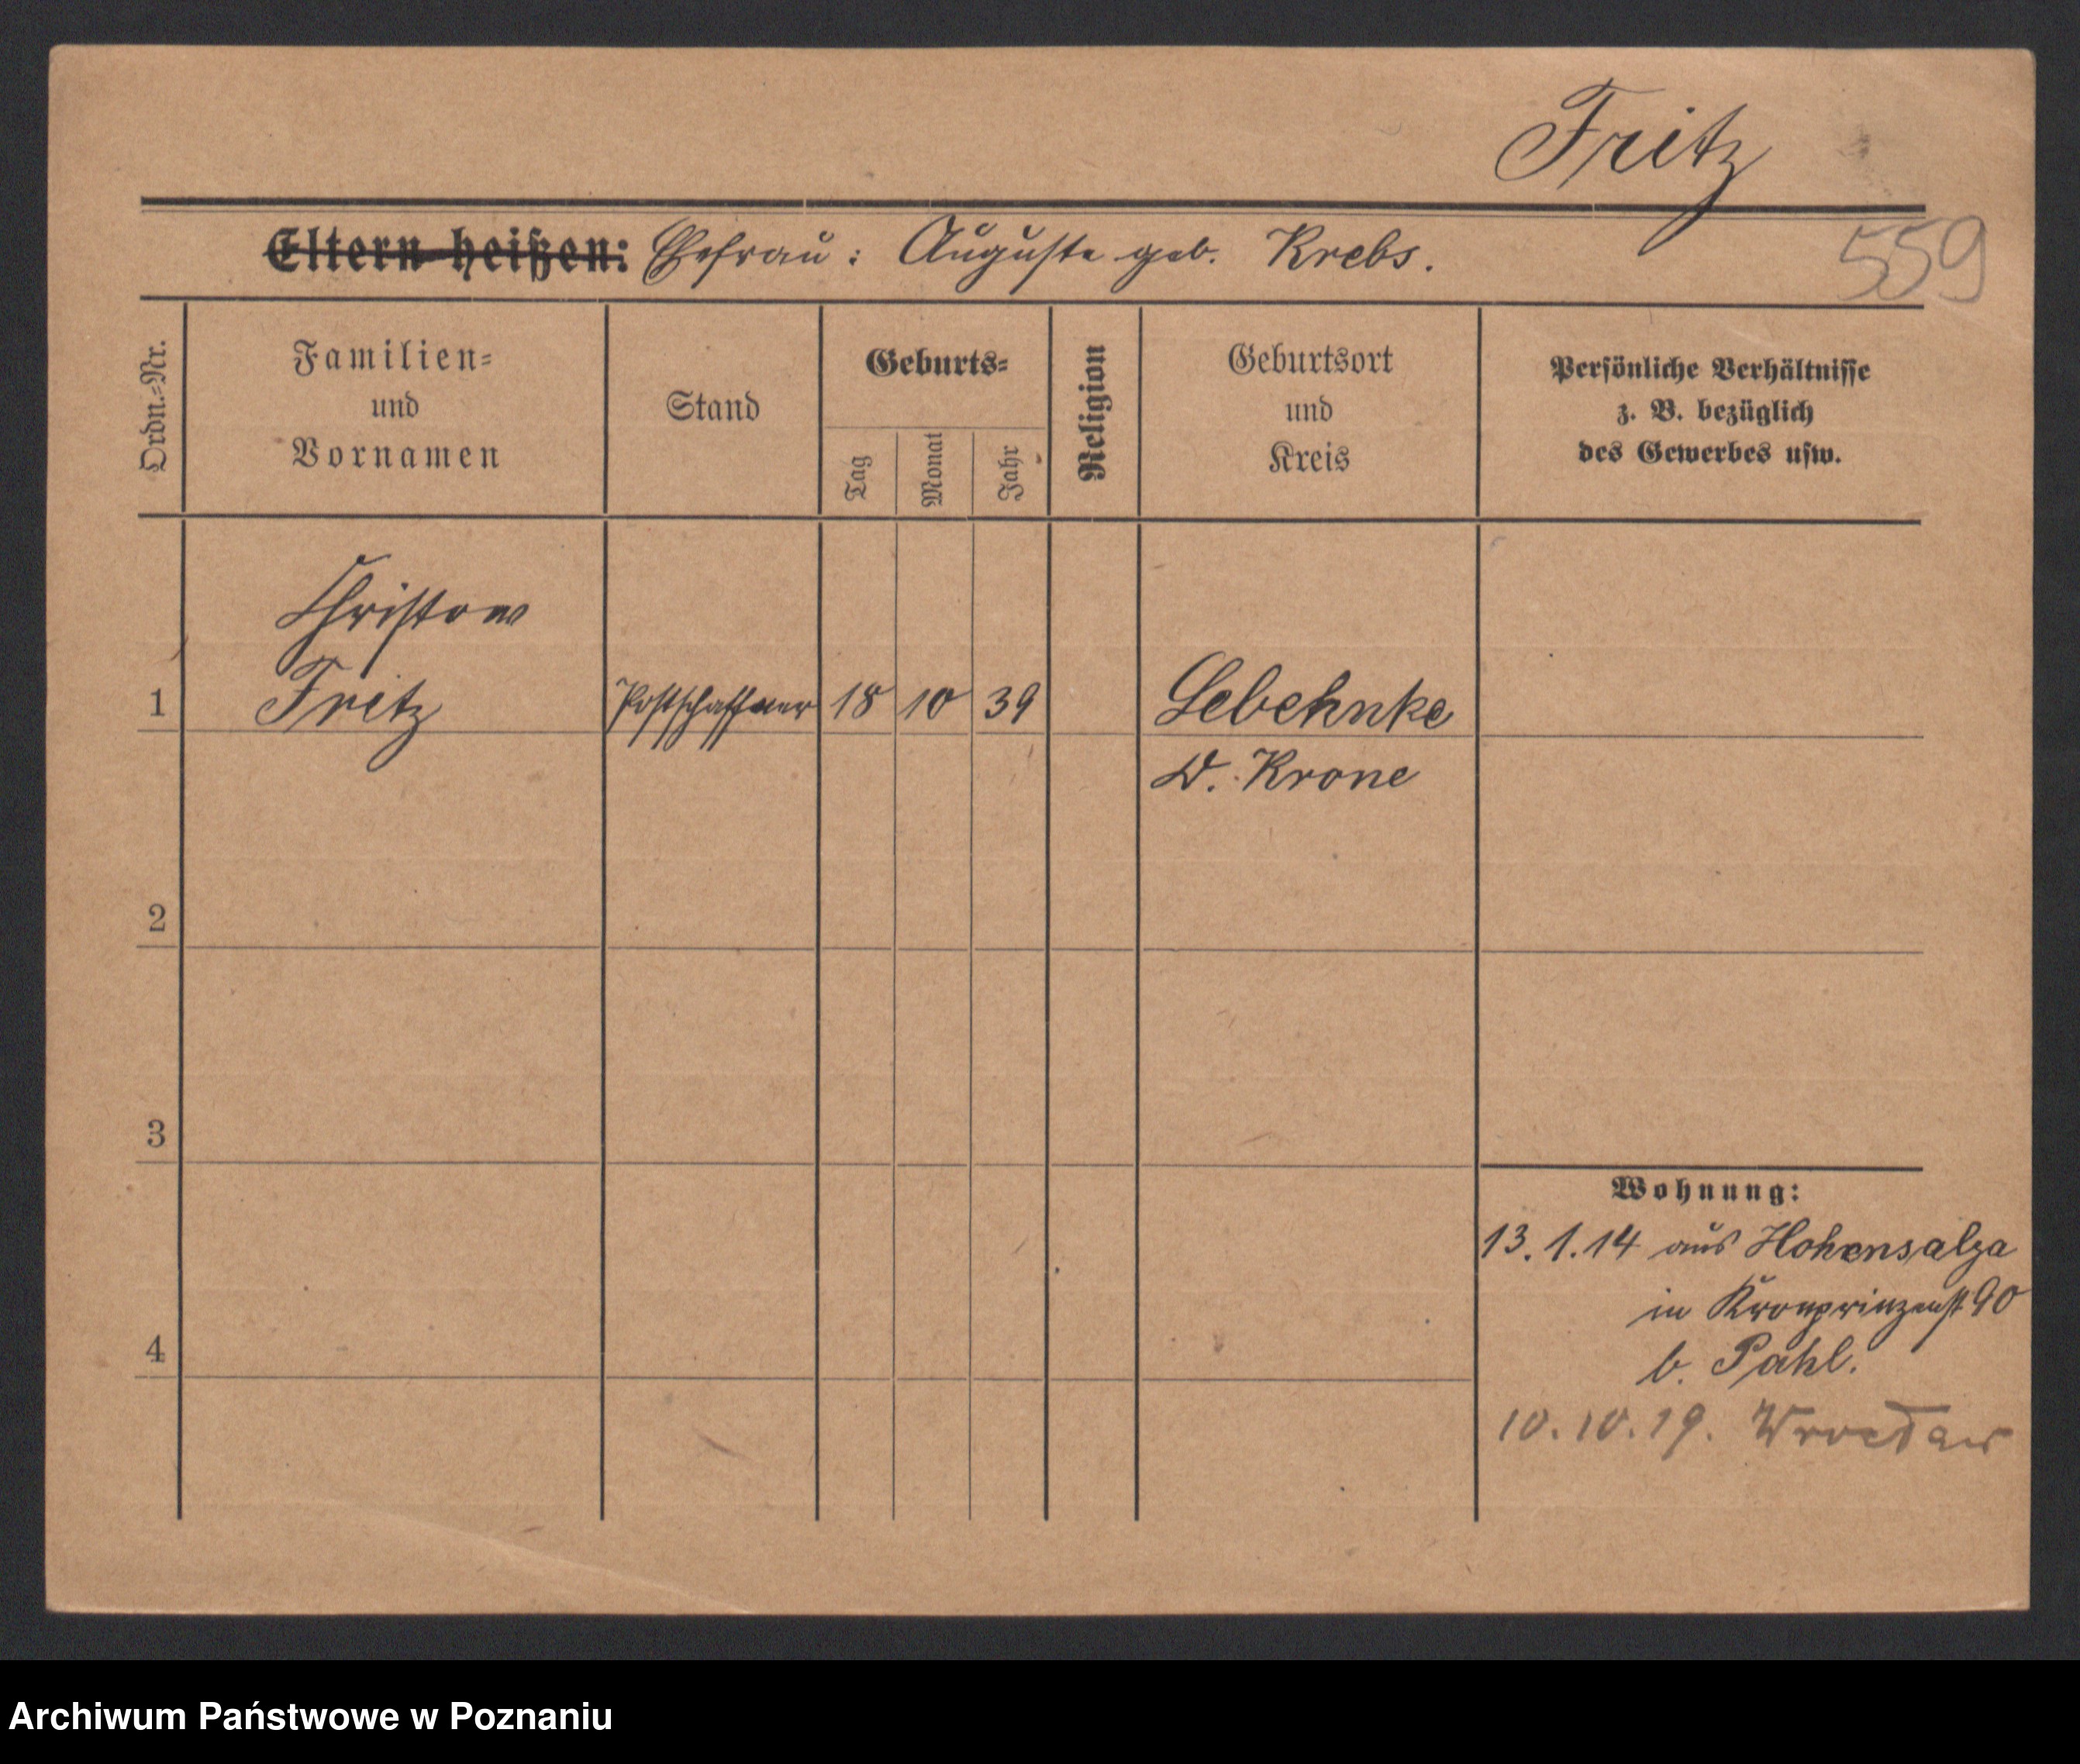 Fritz
559
Eltern heißen: Ehefrau: Auguste geb. Krebs.
Ordn.-Nr.
Familien-
und
Vornamen
Stand
Geburts-
Tag
Monat
Jahr
Religion
Geburtsort
und
Kreis
Persönliche Verhältnisse
z. B. bezüglich
des Gewerbes usw.
Fritz
1 Postschaffner 18 10 39 Lebehnke
D. Krone
2
3
4
Wohnung:
13.1.14 aus Hohensalza
in Kronprinzenst 90
b. Pahl.
10.10.19. Wrocław
Archiwum Państwowe w Poznaniu